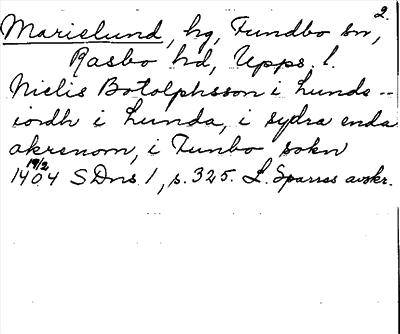 2.
Marielund, hg, Fundbo sn,
Rasbo hd, Upps. l.
Nielis Botolphsson i Lunds--
iordh i Lunda, i sydra enda
akrenom, i Funbo sokn
19/2
1404 SDns 1, s. 325. L. Sparres avskr.